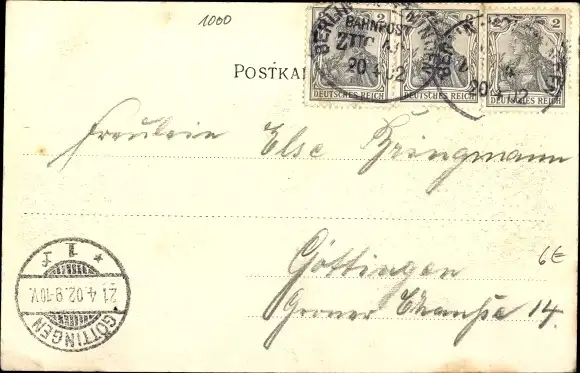 1000
2 2 2
DEUTSCHES REICH DEUTSCHES REICH
BERLIN
BAHNPOST
ZUG
20 4 02
20 4 02
POSTKA
Fräulein Else Bringmann
Göttingen
6€
Groner Chaussee 14.
GÖTTINGEN
21.4.02.9-10V.
* 1 f